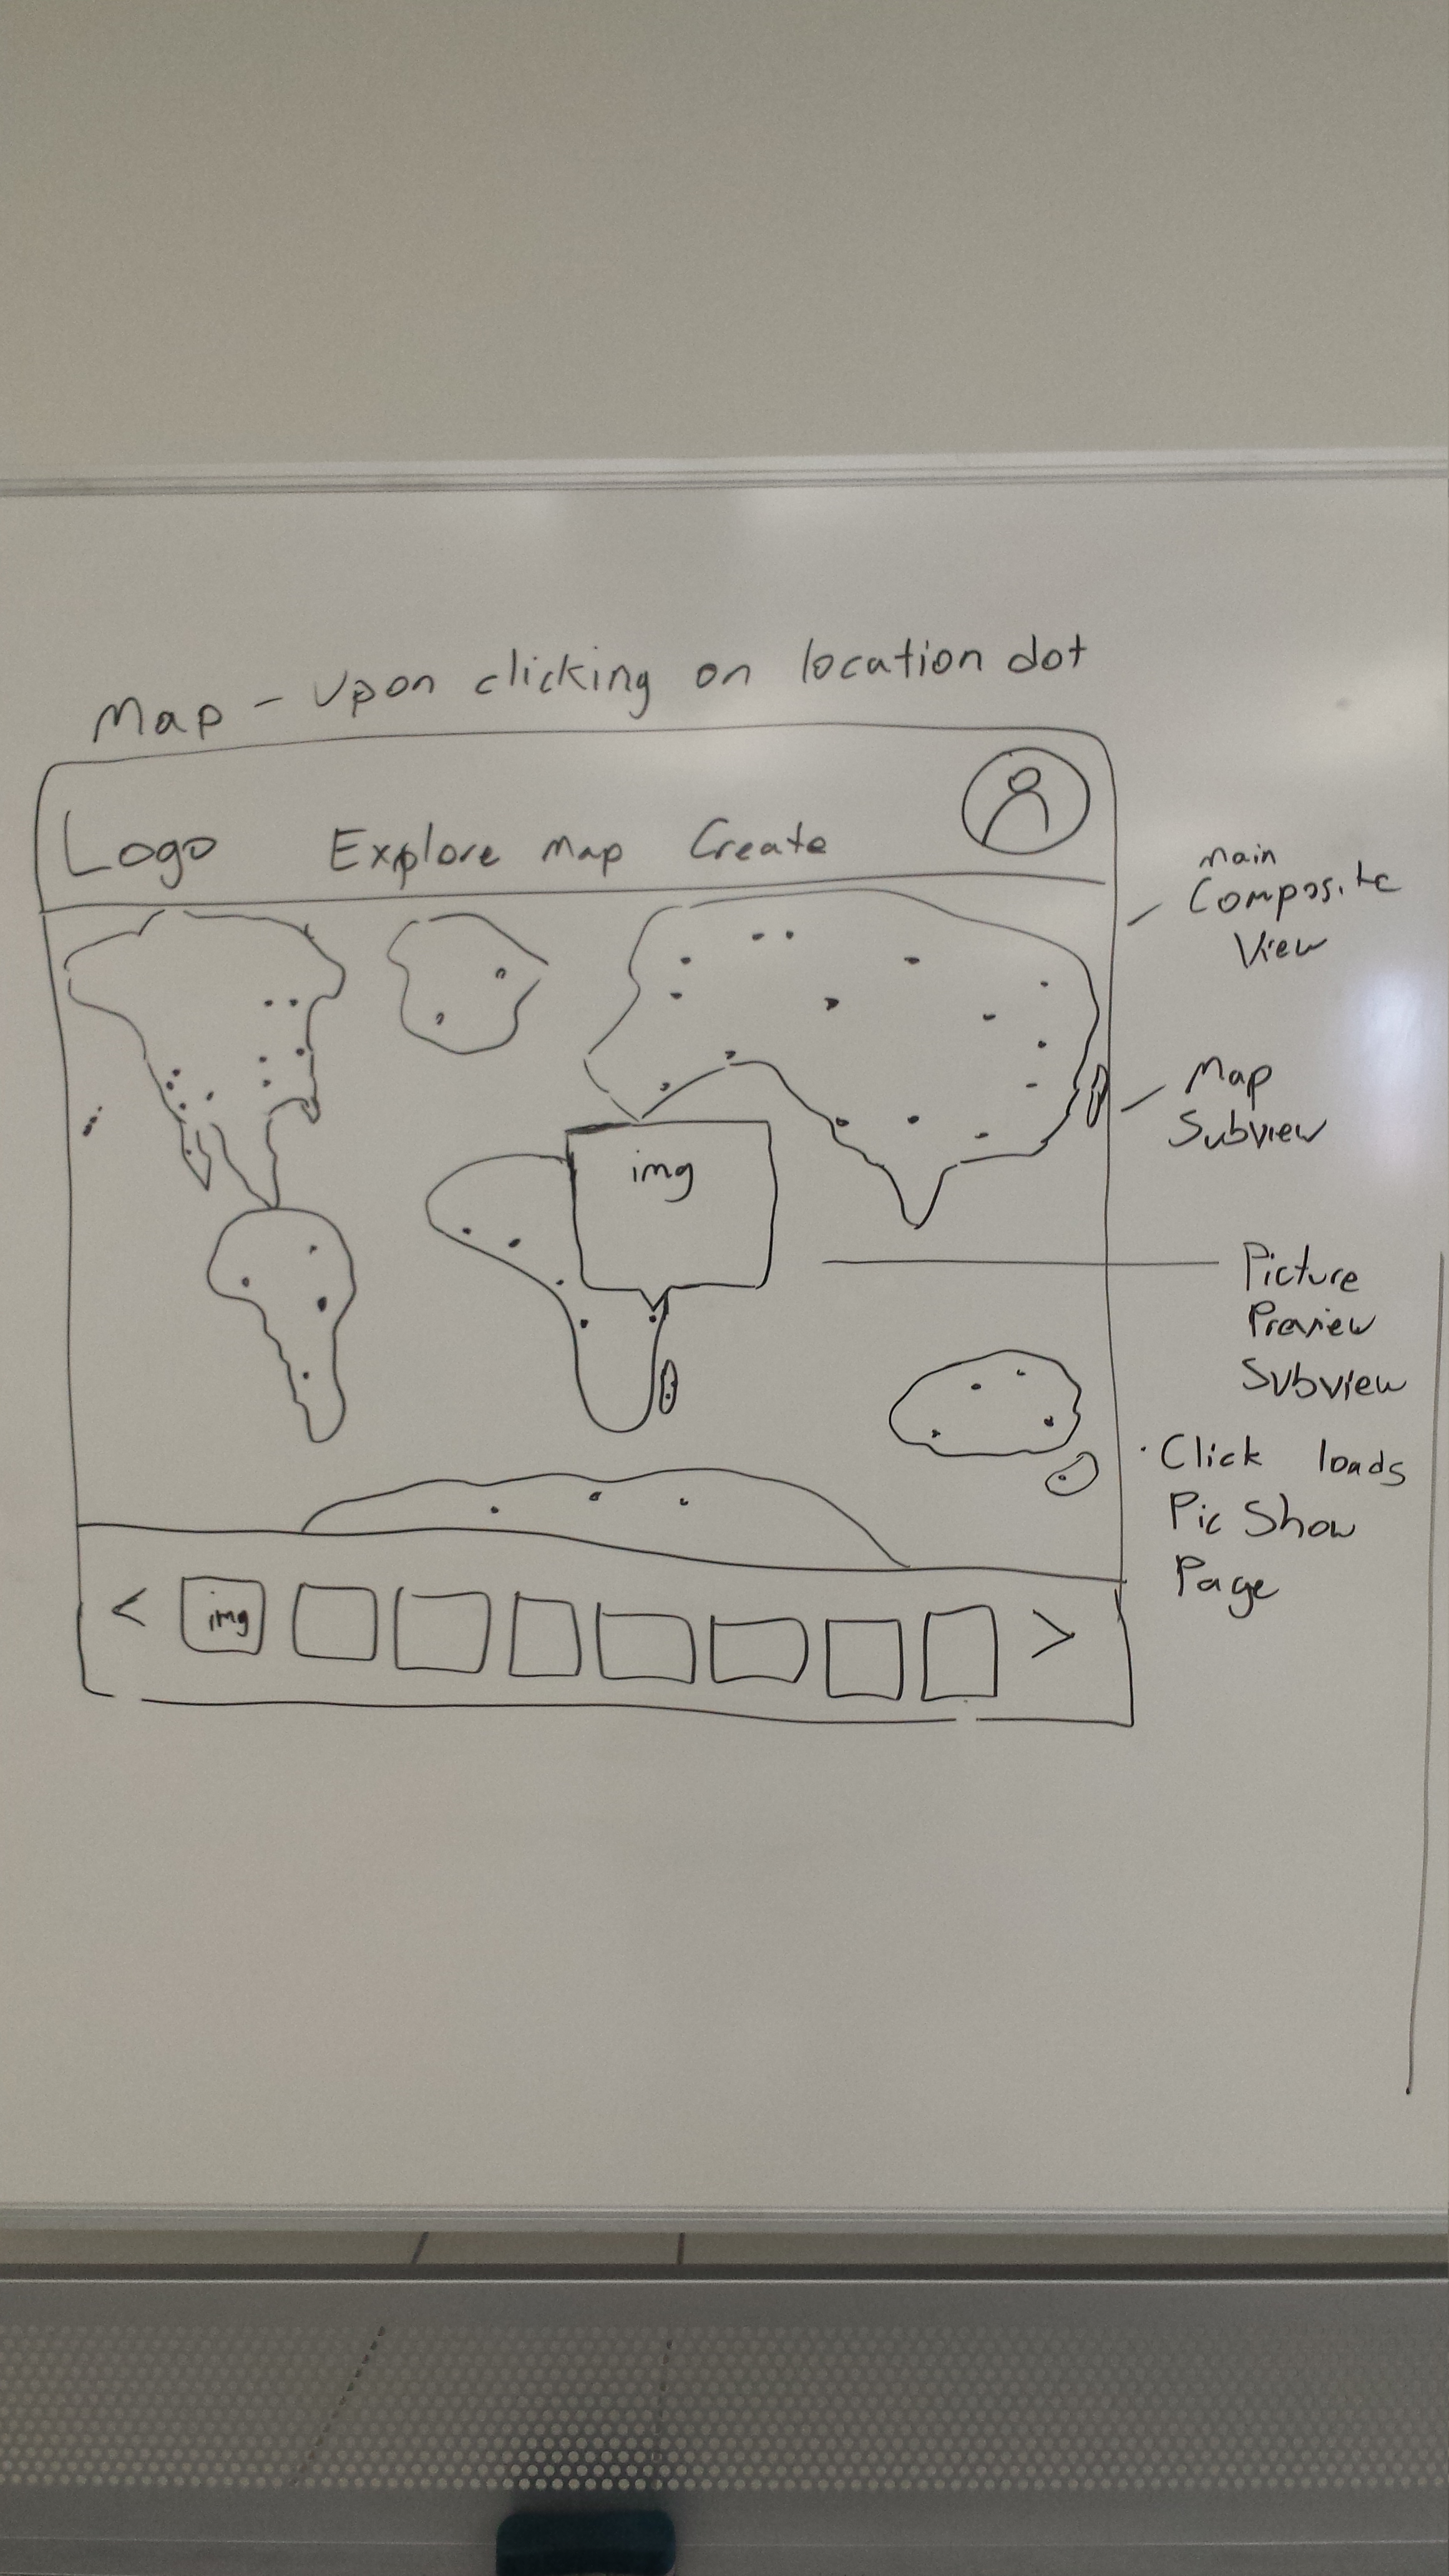 Map - Upon clicking on location dot
Logo Explore Map Create
Main
Composite
View
Map
Subview
img
Picture
Preview
Subview
· Click loads
Pic Show
Page
< img >